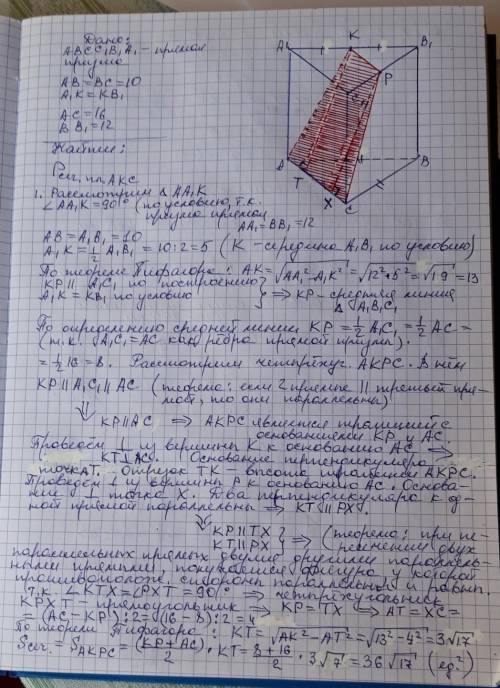 Дано:
ABCC₁B₁A₁ - прямая
призма
AB=BC=10
A₁K=KB₁
AC=16
BB₁=12
Найти:
Pсеч. пл. AKC
A₁ K B₁
P
C₁
A B
T
X
C
1. Рассмотрим △AA₁K
∠AA₁K=90° (по условию, т.к.
призма прямая
AA₁=BB₁=12
AB=A₁B₁=10
A₁K=½A₁B₁=10:2=5 (K-середина A₁B₁ по условию)
По теореме Пифагора: AK=
KP∥A₁C₁ по построению
A₁K=KB₁ по условию } ⇒ KP-средняя линия
△A₁B₁C₁
По определению средней линии KP=½A₁C₁=½AC=
(т.к. A₁C₁=AC как рёбра прямой призмы).
=½16=8. Рассмотрим четырёхуг. AKPC. В нём
KP∥A₁C₁∥AC (теорема: если 2 прямые ∥ третьей пря-
мой, то они параллельны)
⇓
KP∥AC ⇒ AKPC является трапецией с
основаниями KP и AC.
Проведём ⊥ из вершины K к основанию AC ⇒
KT⊥AC. Основание перпендикуляра
точка T. Отрезок TK - высота трапеции AKPC.
Проведём ⊥ из вершины P к основанию AC. Основа-
ние ⊥ точка X. Два перпендикуляра к од-
ной прямой параллельны ⇒ KT∥PX.
⇓
KP∥TX
KT∥PX } ⇒ (теорема: при пе-
ресечении двух
параллельных прямых двумя другими параллель-
ными прямыми, получается фигура у которой
противополож. стороны параллельны и равны.
т.к. ∠KTX=∠PXT=90° ⇒ четырёхугольник
KPXT - прямоугольник ⇒ KP=TX ⇒ AT=XC=
=(AC-KP):2=(16-8):2=4
По теореме Пифагора: KT=√AK²-AT²=√13²-4²=3√17
Sсеч.=S AKPC=(KP+AC)/2·KT=8+16/2·3√7=36√17 (ед²)